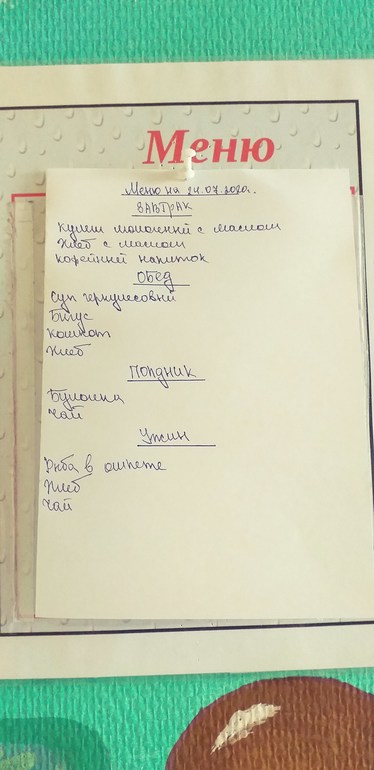 Меню
Меню на 24.07.2020г.
ЗАВТРАК
Кулеш молочный с маслом
Хлеб с маслом
Кофейный напиток
Обед
Суп геркулесовый
Бигус
Компот
Хлеб
Полдник
Булочка
Чай
Ужин
Рыба в омлете
Хлеб
Чай